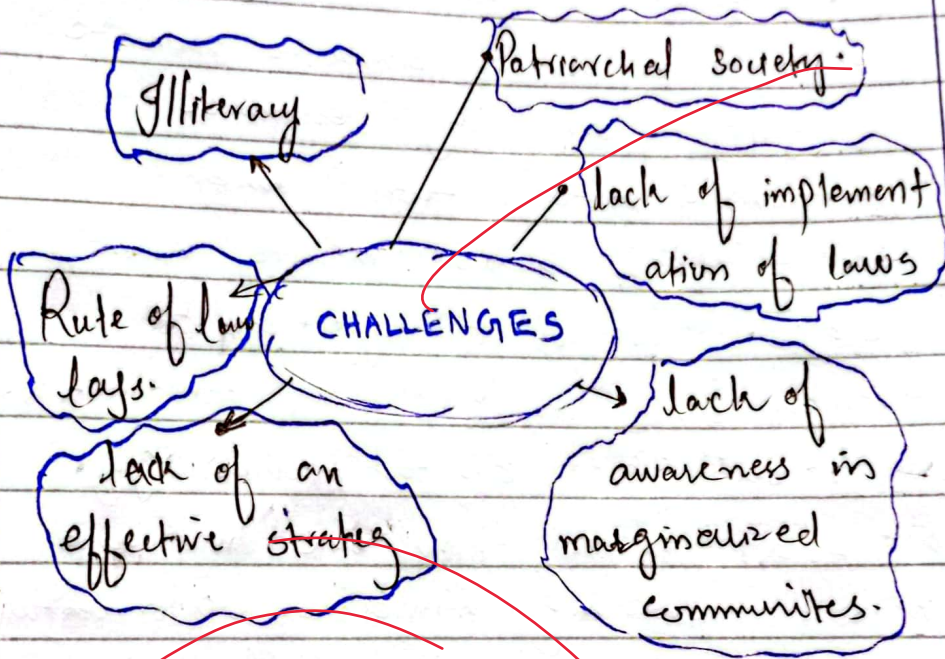 Illiteracy
Patriarchal society.
lack of implement
ation of laws
CHALLENGES
Rule of law
lags.
lack of an
effective strateg
lack of
awareness in
marginalized
communites.